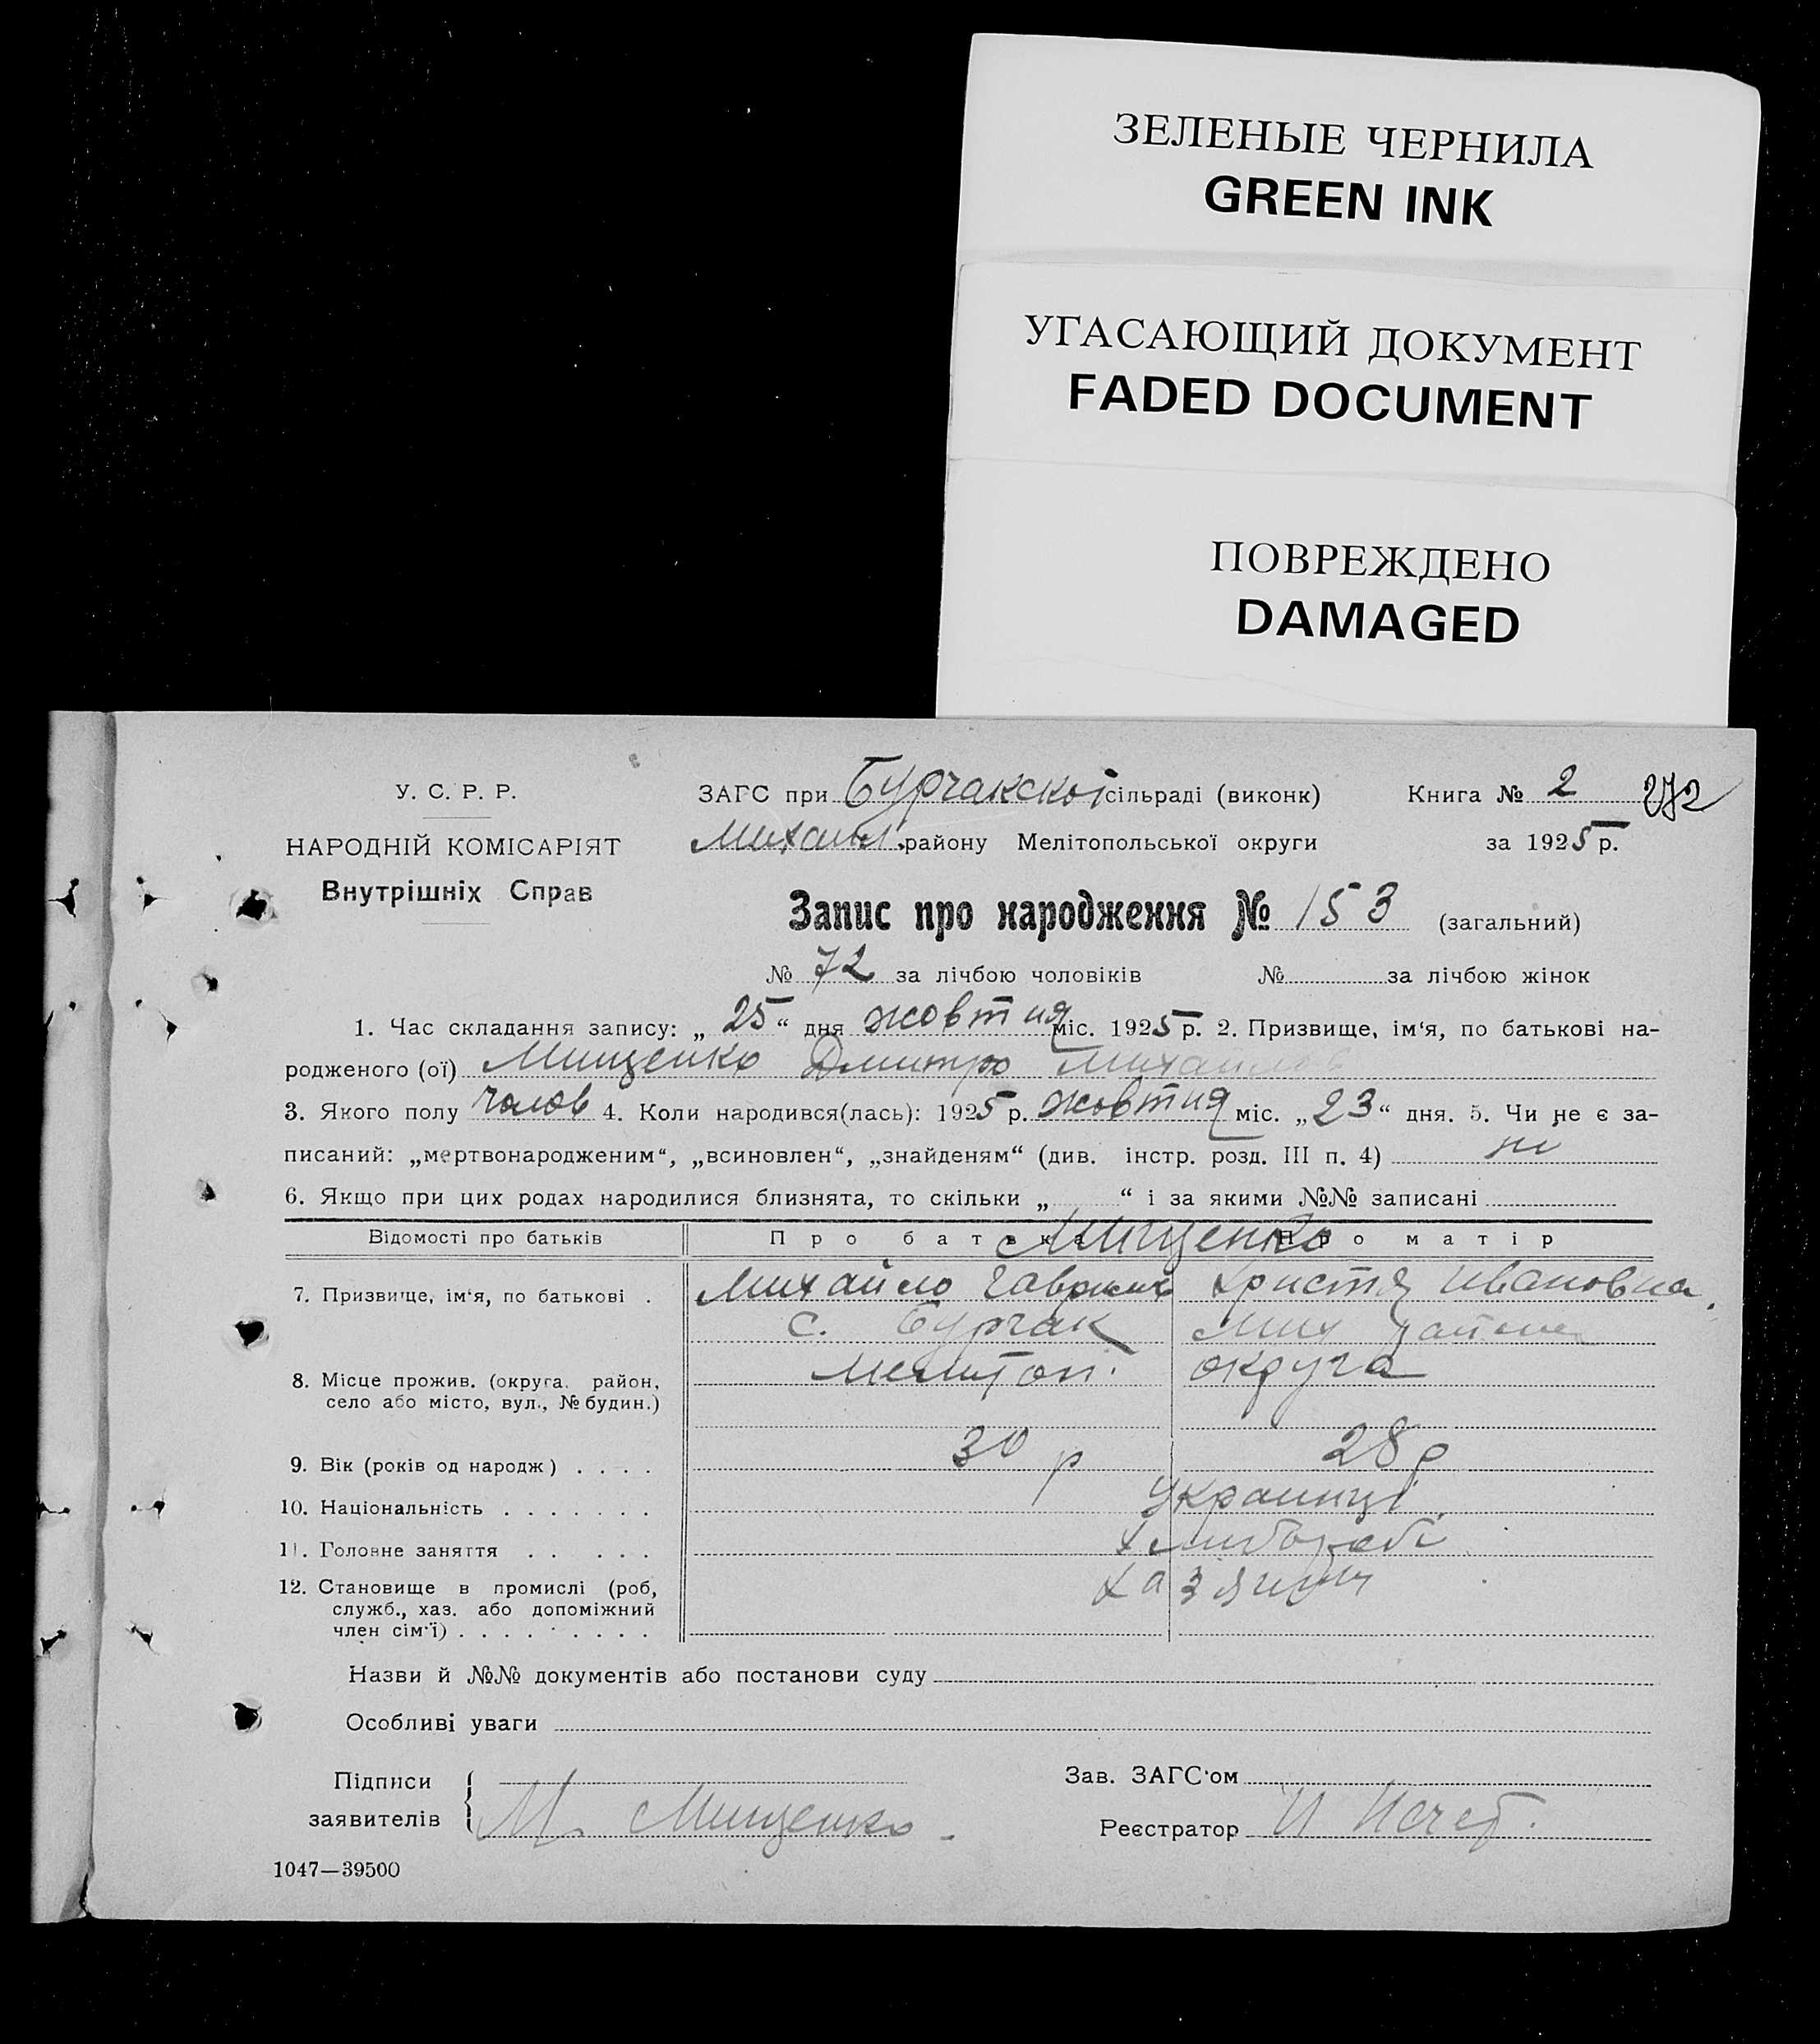 ЗЕЛЕНЫЕ ЧЕРНИЛА
GREEN INK
УГАСАЮЩИЙ ДОКУМЕНТ
FADED DOCUMENT
ПОВРЕЖДЕНО
DAMAGED
У. С. Р. Р.
НАРОДНІЙ КОМІСАРІЯТ
Внутрішніх Справ
ЗАГС при Бурчакскоі сільраді (виконк) Книга № 2 272
Михайл. району Мелітопольської округи за 1925 р.
Запис про народження № 153 (загальний)
№ 72 за лічбою чоловіків № за лічбою жінок
1. Час складання запису: „ 25 “ дня жовтня міс. 1925 р. 2. Призвище, ім‘я, по батькові на-
родженого (ої) Мищенко Дмитро Михайлов
3. Якого полу чолов 4. Коли народився(лась): 1925 р. жовтня міс. „ 23 “ дня. 5. Чи не є за-
писаний: „мертвонародженим“, „всиновлен“, „знайденям“ (див. інстр. розд. III п. 4) ні
6. Якщо при цих родах народилися близнята, то скільки „ “ і за якими №№ записані
Відомості про батьків Про батька Про матір
Мищенко
7. Призвище, ім‘я, по батькові . Михайло Христя Ивановна.
с. Бурчак Мих района
8. Місце прожив. (округа, район, село або місто, вул., № будин.) Мелитоп. округа
9. Вік (років од народж) . . . . 30 р 28 р
10. Національність . . . . . . . Украинці
11. Головне заняття . . . . . Хлибороби
12. Становище в промислі (роб, служб., хаз. або допоміжний член сім‘ї) . . . . . . . . . Хазяини
Назви й №№ документів або постанови суду
Особливі уваги
Підписи заявителів М. Мищенко
Зав. ЗАГС‘ом
Реєстратор
1047—39500